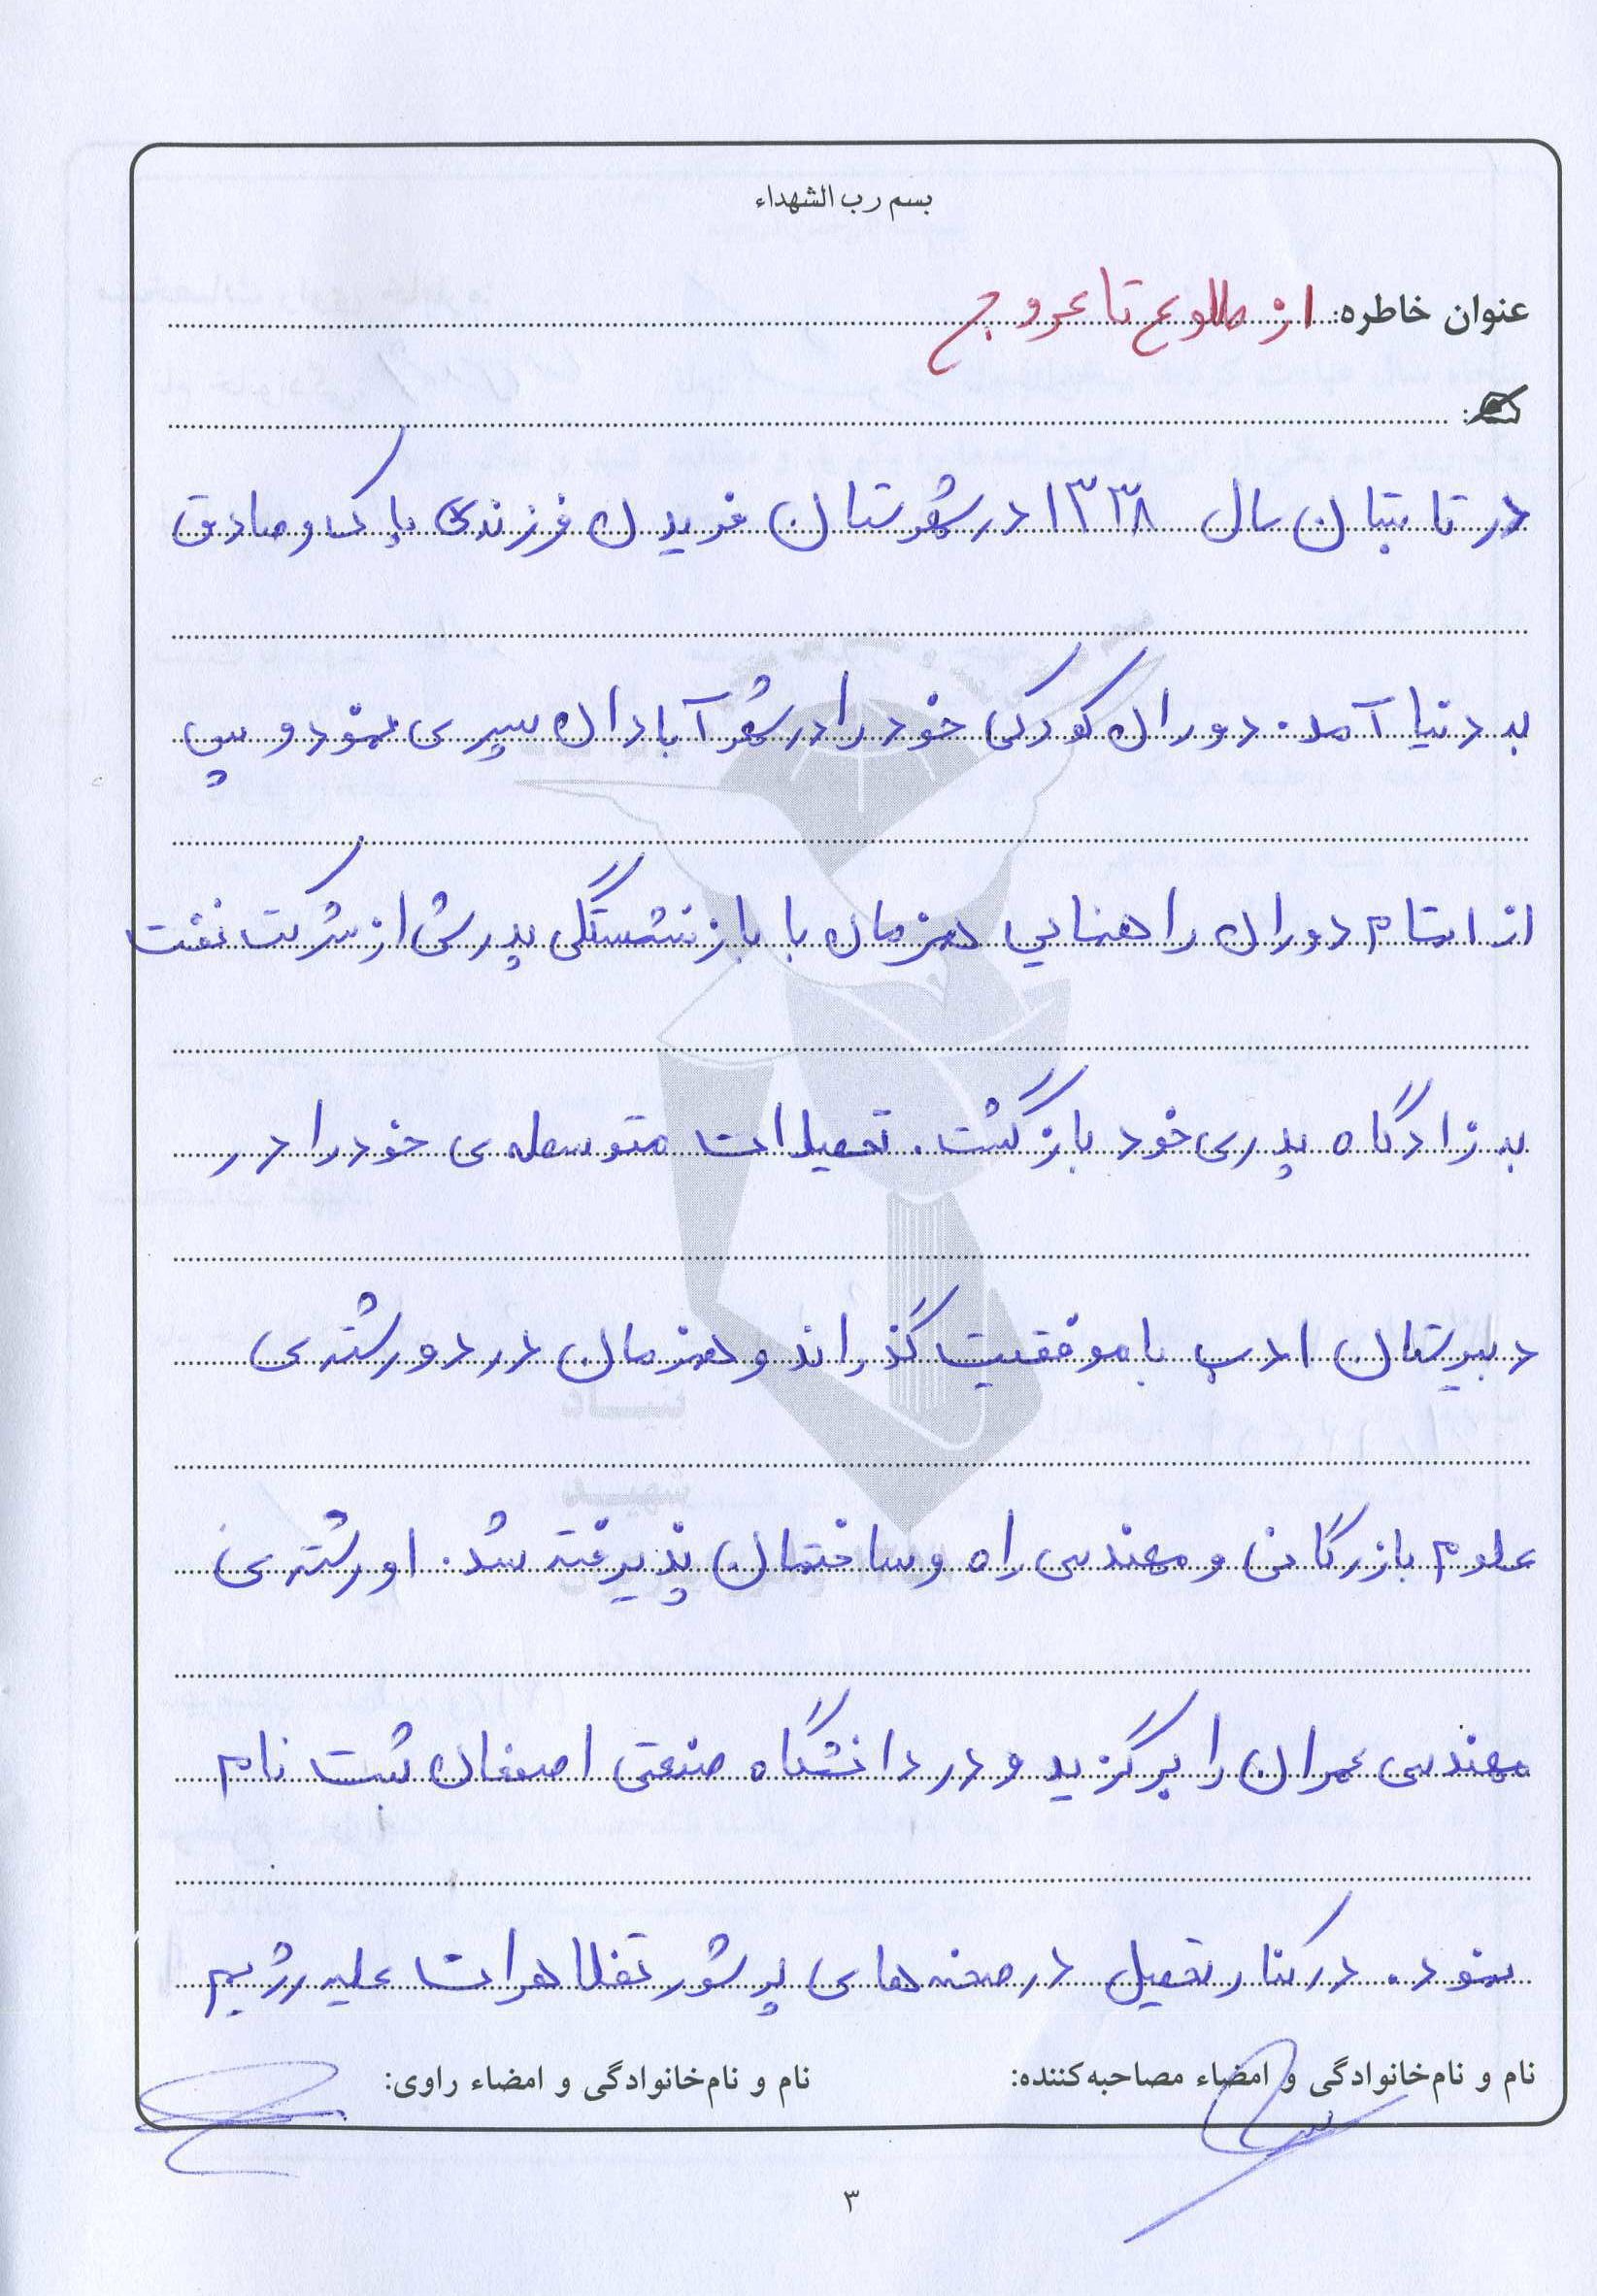 بسم رب الشهداء
عنوان خاطره: از طلوع تا عروج
در تابستان سال ۱۳۳۸ در شهرستان فریدن فرزندی پاک و صادق
به دنیا آمد. دوران کودکی خود را در شهر آبادان سپری نمود و سپس
از اتمام دوران راهنمایی همزمان با بازنشستگی پدرش از شرکت نفت
به زادگاه پدری خود بازگشت. تحصیلات متوسطه ی خود را در
دبیرستان ادب با موفقیت گذراند و همزمان در دو رشته ی
علوم بازرگانی و مهندسی راه و ساختمان پذیرفته شد. او رشته ی
مهندسی عمران را برگزید و در دانشگاه صنعتی اصفهان ثبت نام
نمود. در کنار تحصیل در صحنه های پر شور تظاهرات علیه رژیم
نام و نام‌خانوادگی و امضاء مصاحبه‌کننده: نام و نام‌خانوادگی و امضاء راوی:
۳